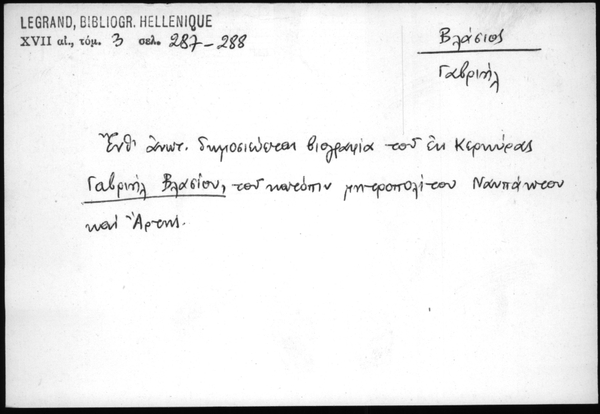 LEGRAND, BIBLIOGR. HELLENIQUE
XVII αἰ., τόμ. 3 σελ. 287-288
Βλάσιος
Γαβριήλ
Ἔνθ' ἀνωτ. δημοσιεύεται βιογραφία τοῦ ἐκ Κερκύρας
Γαβριήλ Βλασίου, τοῦ κατόπιν μητροπολίτου Ναυπάκτου
καί Ἄρτης.